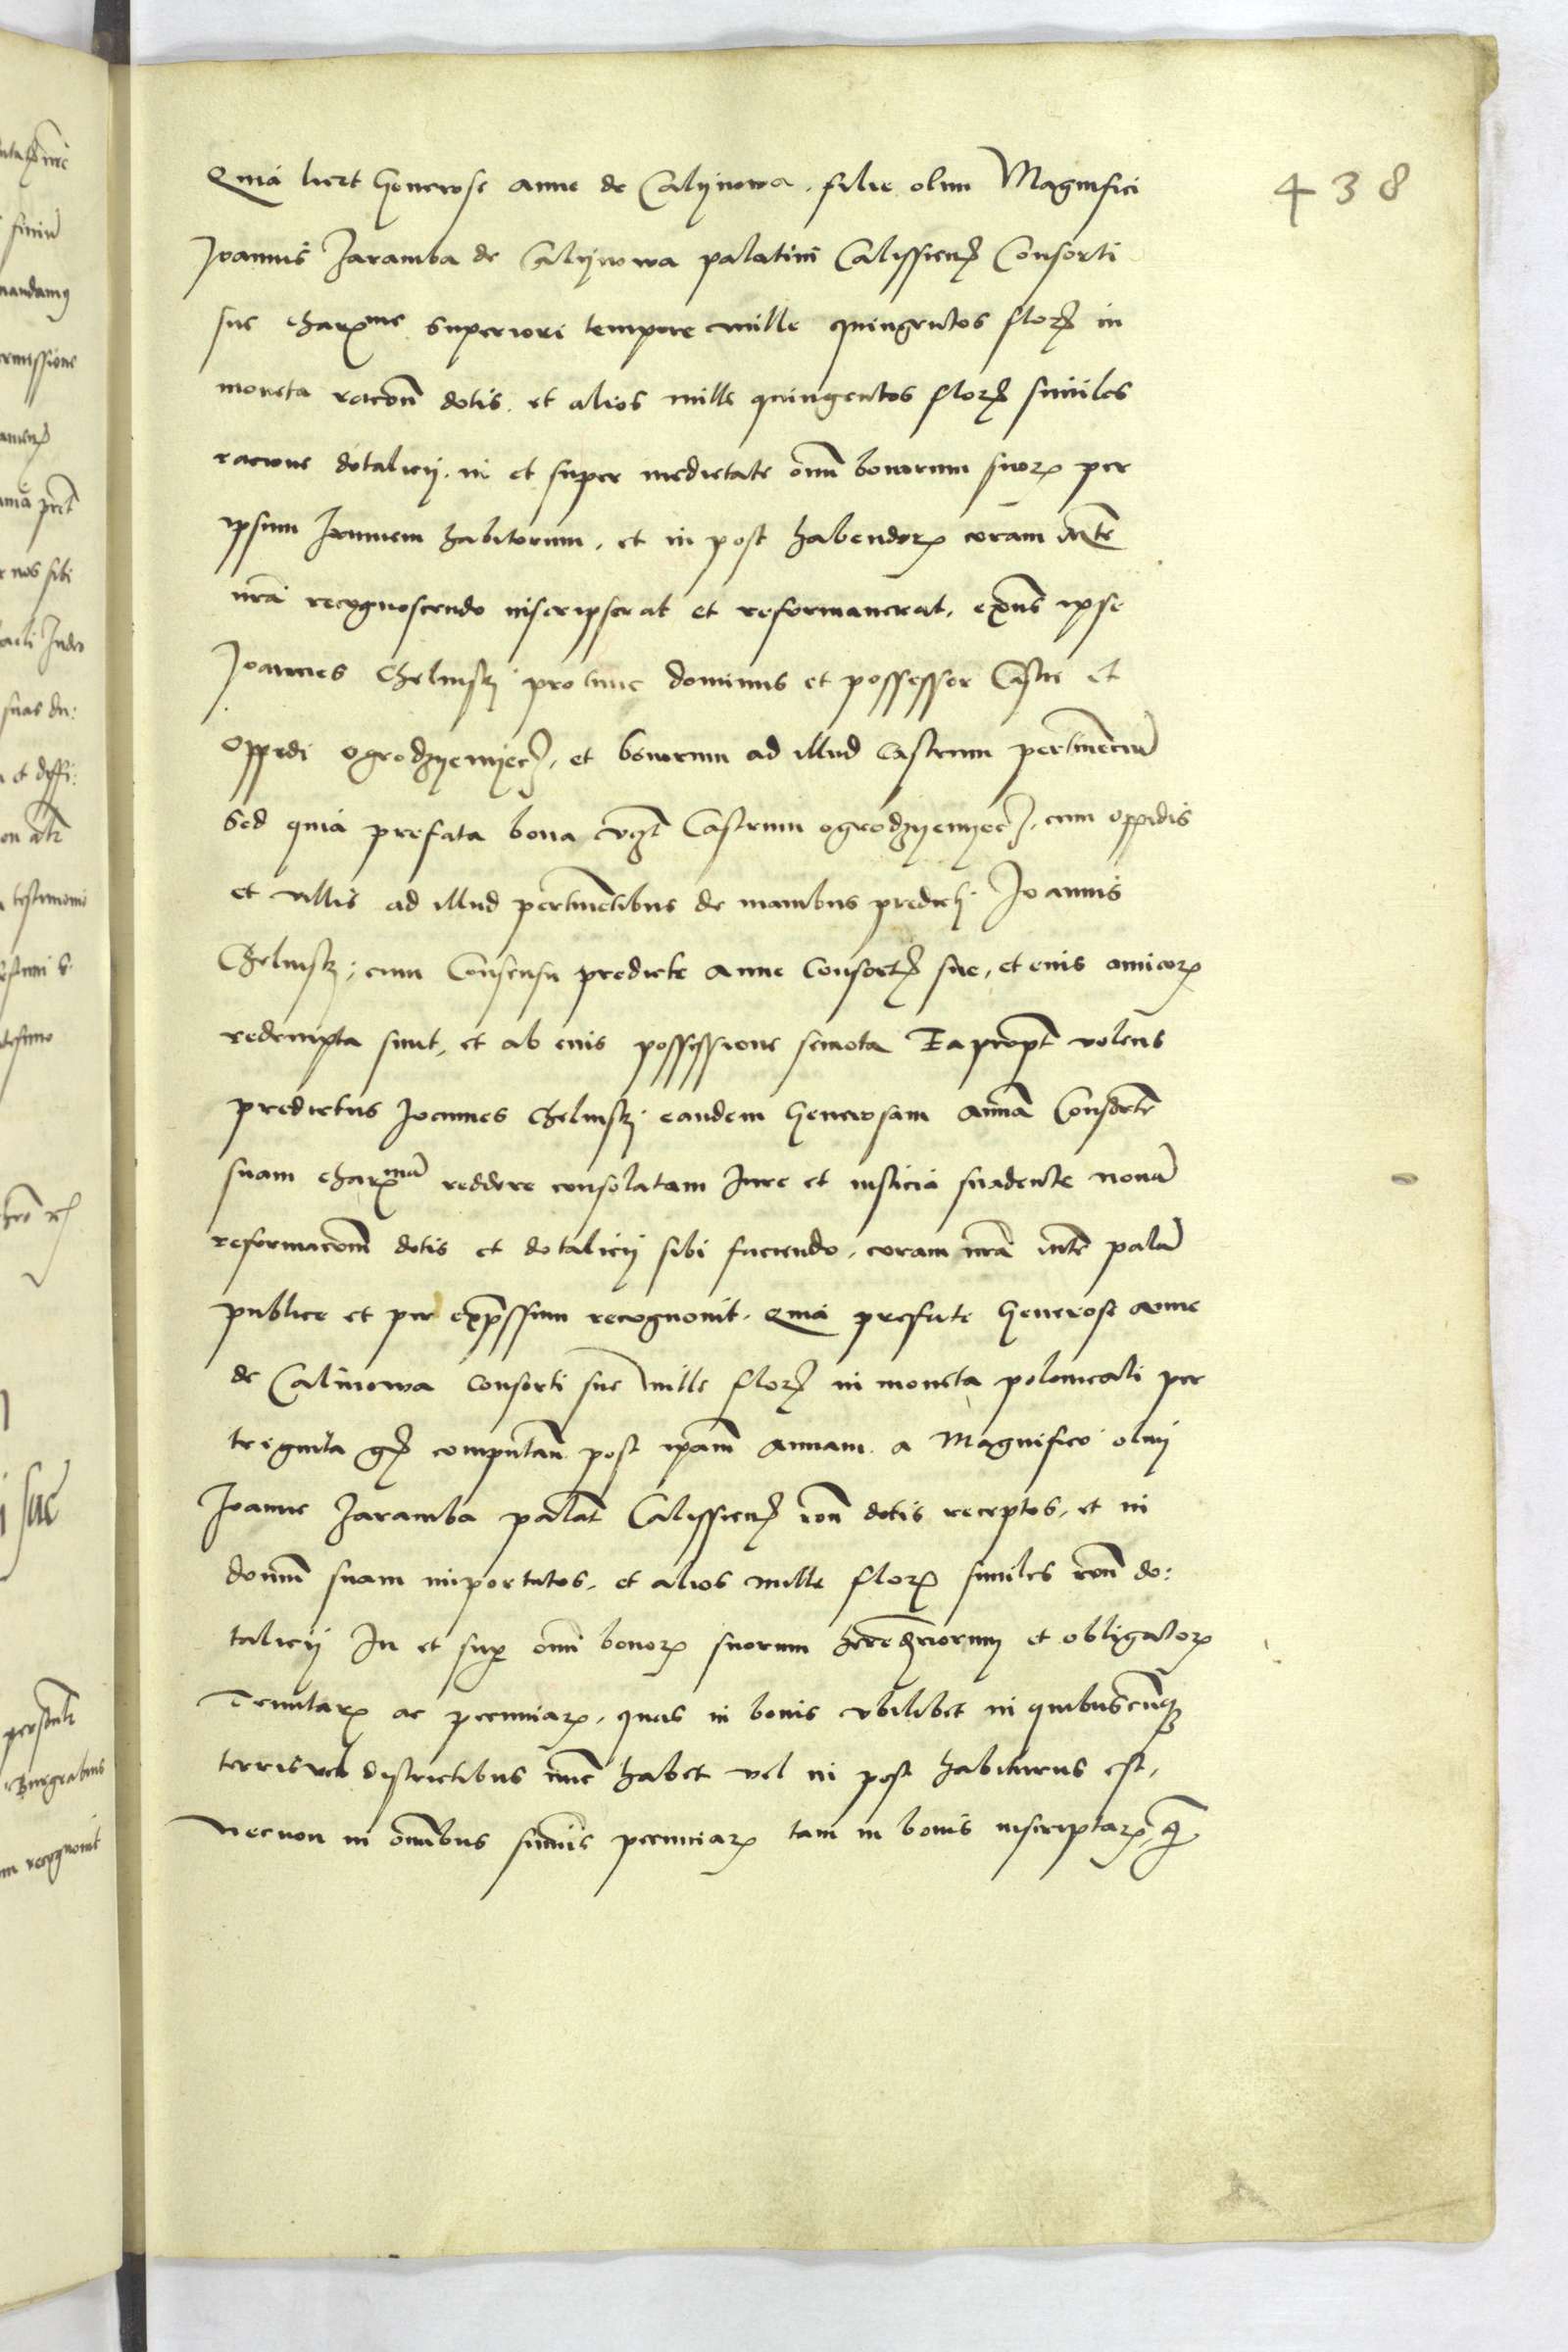 438
Quia licet Generose Anne de Calijnowa filie olim Magnifici
Joannis Jaramba de Calijnowa palatini Calissienꝭ Consorti
sue charꝫme superiori tempore mille quingentos florꝫ in
moneta racōn dotis et alios mille quingentos florꝫ similes
racione dotalicij in et super medietate oīm bonorum suorꝫ per
ipsum Joannem habitorum, et in post habendorꝫ coram Mte
nrā recognoscendo inscripserat et reformauerat, exn̄s ipse
Joannes Chelmskj protunc dominus et possessor Castri et
oppidi ogrodzyenyecꝫ, et bonorum ad illud castrum pertinenciū
Sed quia prefata bona vꝫt Castrum ogrodzyenyecꝫ, cum oppidis
et villis ad illud pertinētibus de manibus predicti Joannis
Chelmskj, cum Consensu predicte Anne Consortꝭ sue, et eius amicorꝫ
redempta sunt, et ab eius possessione semota Eapropt̄ volens
predictus Joannes Chelmskj eandem Generosam Annā Consortē
suam charꝫmā reddere consolatam Jure et iusticia suadente nouā
reformacōnem dotis et dotalicij sibi faciendo, coram nrā mte palā
publice et per exp̄ssum recognouit. Quia prefate Generose Anne
de Calinowa consorti sue mille florꝫ in moneta polonicali per
triginta gꝫ computan̄ post ip̄am Annam a Magnifico olim
Joanne Jaramba palat̄ Calissienꝭ rōn dotis receptos, et in
domū suam importatos, et alios mille florꝫ similes rōn do:
talicij In et sup̱ oīm bonorꝫ suorum hereditariorum et obligatorꝫ
Tenutarꝫ ac pecuniarꝫ, quas in bonis vbilibet in quibuscunqꝫ
terris vel districtibus nūc habet vel in post habiturus est,
Necnon in oīmbus sūmis pecuniarꝫ tam in bonis inscriptarꝫ, q̄